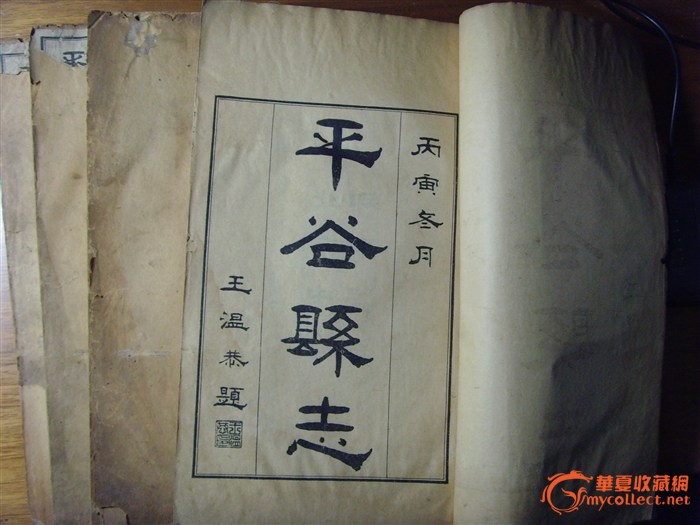 丙寅冬月
平谷縣志
王溫恭題
平
華夏收藏網
mycollect.net